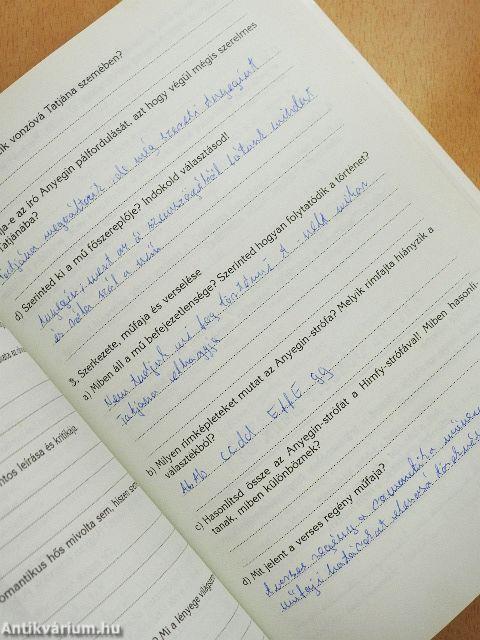 ik vonzóvá Tatjána szemében?
ja-e az író Anyegin pálfordulását, azt hogy végül mégis szerelmes
Tatjánába?
Tatjána megváltozik de még szereti Anyegint
d) Szerinted ki a mű főszereplője? Indokold választásod!
Anyegin, mert az ő szemszögéből látunk mindent
és róla szól a mű
3. Szerkezete, műfaja és verselése
a) Miben áll a mű befejezetlensége? Szerinted hogyan folytatódik a történet?
Nem tudjuk mi fog történni A.
Tatjána elhagyja
b) Milyen rímképleteket mutat az Anyegin-strófa? Melyik rímfajta hiányzik a
választékból?
AbAb ccdd EffE gg
c) Hasonlítsd össze az Anyegin-strófát a Himfy-strófával! Miben hasonlí-
tanak, miben különböznek?
d) Mit jelent a verses regény műfaja?
A verses regény a romantika
műfaji határokat
ntos leírása és kritikája.
omantikus hős mivolta sem, hiszen
o Mi a lényege világam
Antikvárium.hu